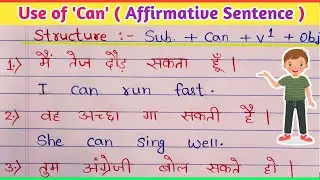 Use of 'Can' ( Affirmative Sentence )
Structure :- Sub. + Can + v¹ + Obj
1.) मैं तेज दौड़ सकता हूँ ।
I can run fast.
2.) वह अच्छा गा सकती है ।
She can sing well.
3.) तुम अंग्रेजी बोल सकते हो ।